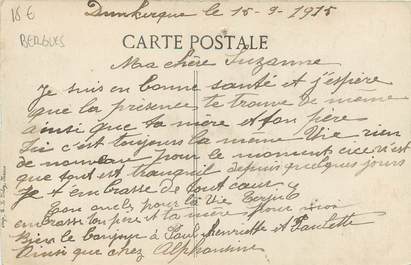 18 €
BERGUES
Dunkerque le 15-9-1915
CARTE POSTALE
Ma chère Suzanne
Je suis en bonne santé et j'espère
que la présence te trouve de même
ainsi que ta mère et ton père
Ici c'est toujours la même Vie rien
de nouveau pour le moment ici c'est
que tout est tranquil depuis quelques jours
Je t'embrasse de tout cœur.
Ton oncle pour la Vie
embrasse ton père et ta mère pour moi
Bien le bonjour à Paul henriette et Paulette
Ainsi que chez Alphonsine